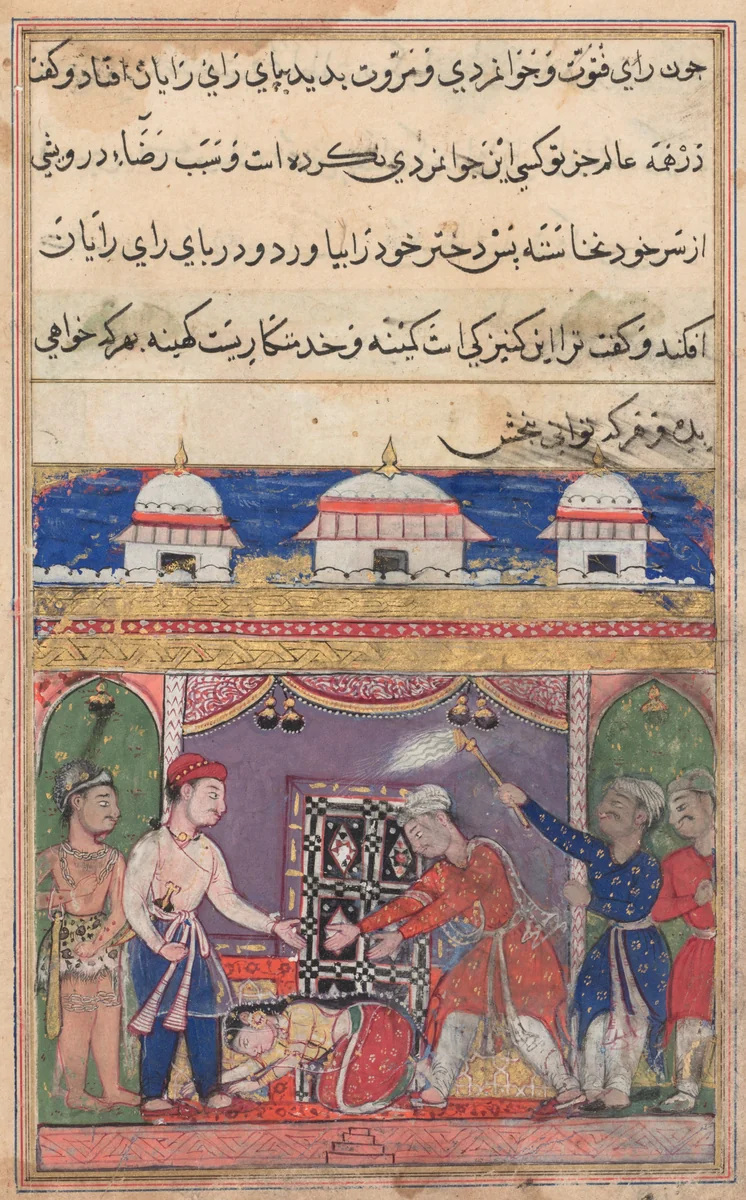 چون رای فتوّت و جوانمردی و مروّت بدید بپای رای رایان افتاد و کفت
در همه عالم جز تو کسی این جوانمردی نکرده است و سبب رضاء درویشی
از سر خود نخاسته پس دختر خود را بیاورد و در پای رای رایان
افکند و کفت ترا این کنیزکی است کمینه و خدمتکاریست کهینه بهر که خواهی
بده و هر که توانی ببخش